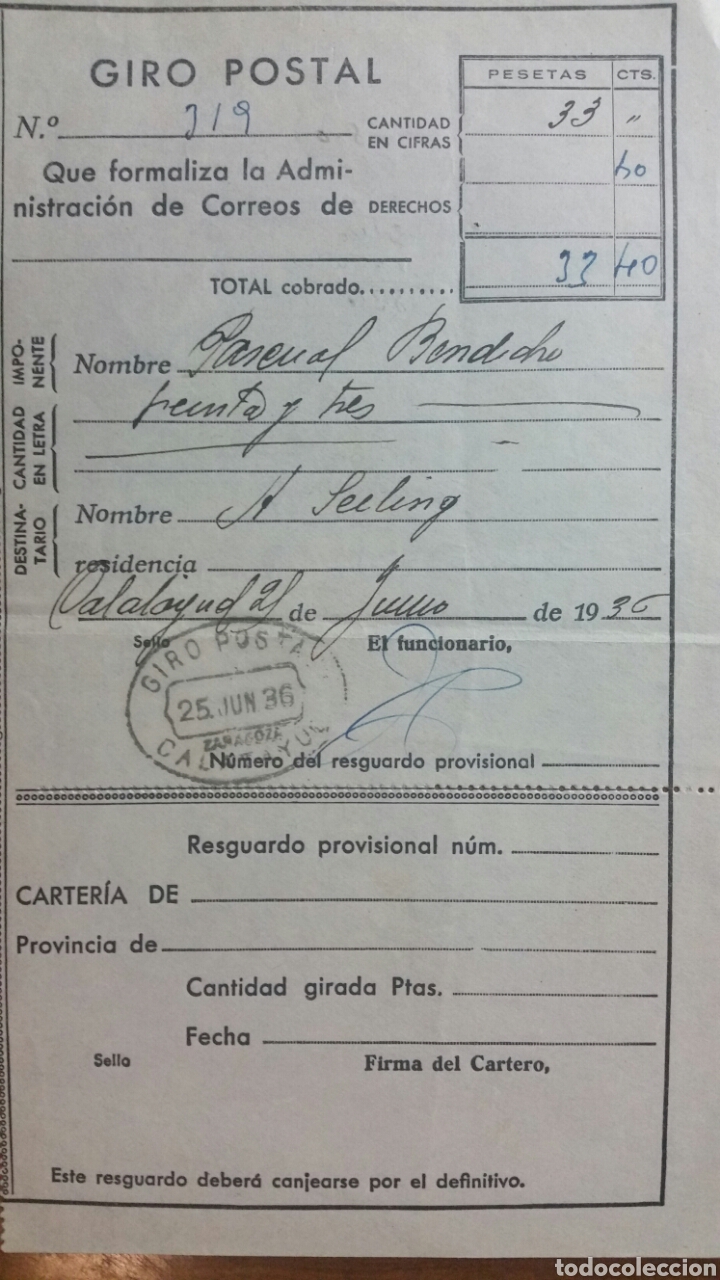 GIRO POSTAL
PESETAS CTS.
N.º 319
CANTIDAD EN CIFRAS
33 „
Que formaliza la Admi-
40
nistración de Correos de
DERECHOS
TOTAL cobrado..........
33 40
IMPO-
NENTE
Nombre Pascual Bendicho
CANTIDAD
EN LETRA
treinta y tres
DESTINA-
TARIO
Nombre A Seeling
residencia
Calatayud 25 de Junio de 1936
Sello El funcionario,
GIRO POSTAL
25 JUN 36
ZARAGOZA
CALATAYUD
Número del resguardo provisional
Resguardo provisional núm.
CARTERÍA DE
Provincia de
Cantidad girada Ptas.
Fecha
Sello Firma del Cartero,
Este resguardo deberá canjearse por el definitivo.
todocoleccion